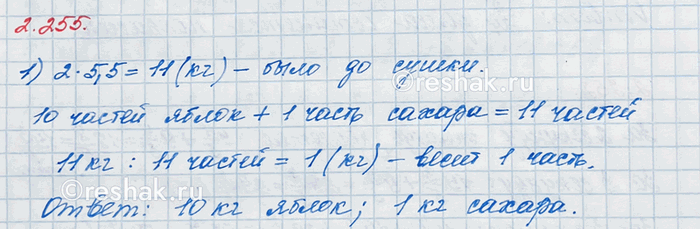 2.255.
1) 2·5,5 = 11 (кг) – было до сушки.
10 частей яблок + 1 часть сахара = 11 частей
11 кг : 11 частей = 1 (кг) – весит 1 часть.
Ответ: 10 кг яблок; 1 кг сахара.
©reshak.ru
©reshak.ru